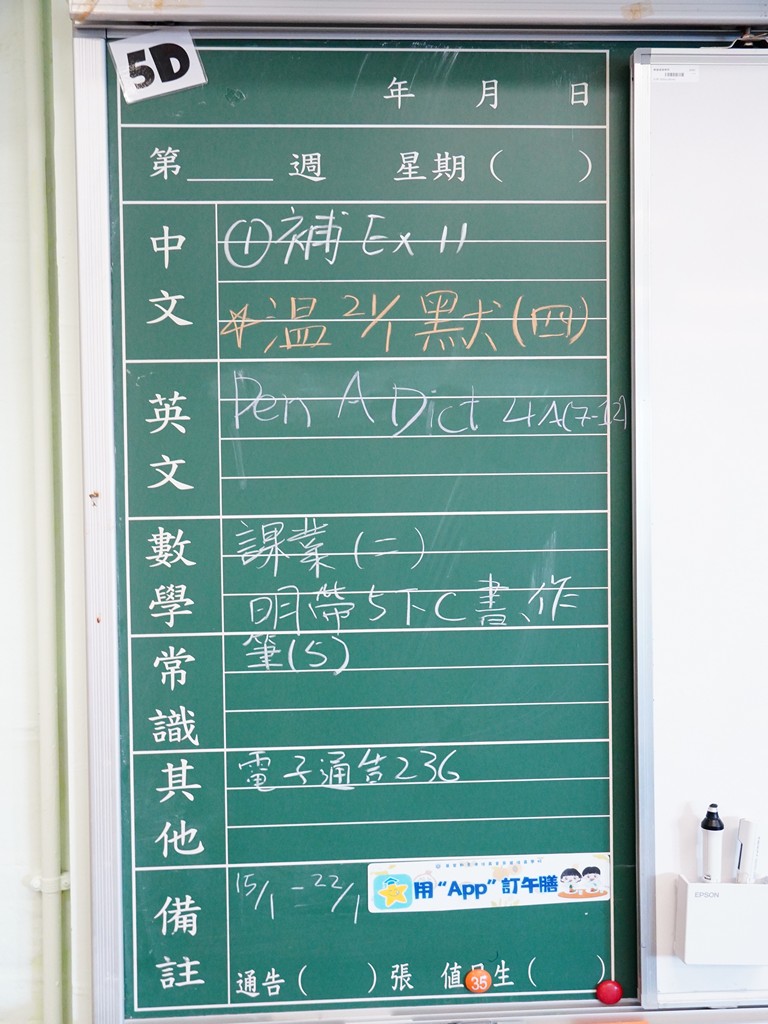 5D
年 月 日
第____週 星期( )
中文
①補 Ex 11
☆温 21/1 默(四)
英文
Pen A Dict 4A(7-12)
數學
課業(二)
明帶5下C書、作
常識
筆(5)
其他
電子通告236
備註
15/1 - 22/1
用“App”訂午膳
通告( )張 值日生( )
35
EPSON